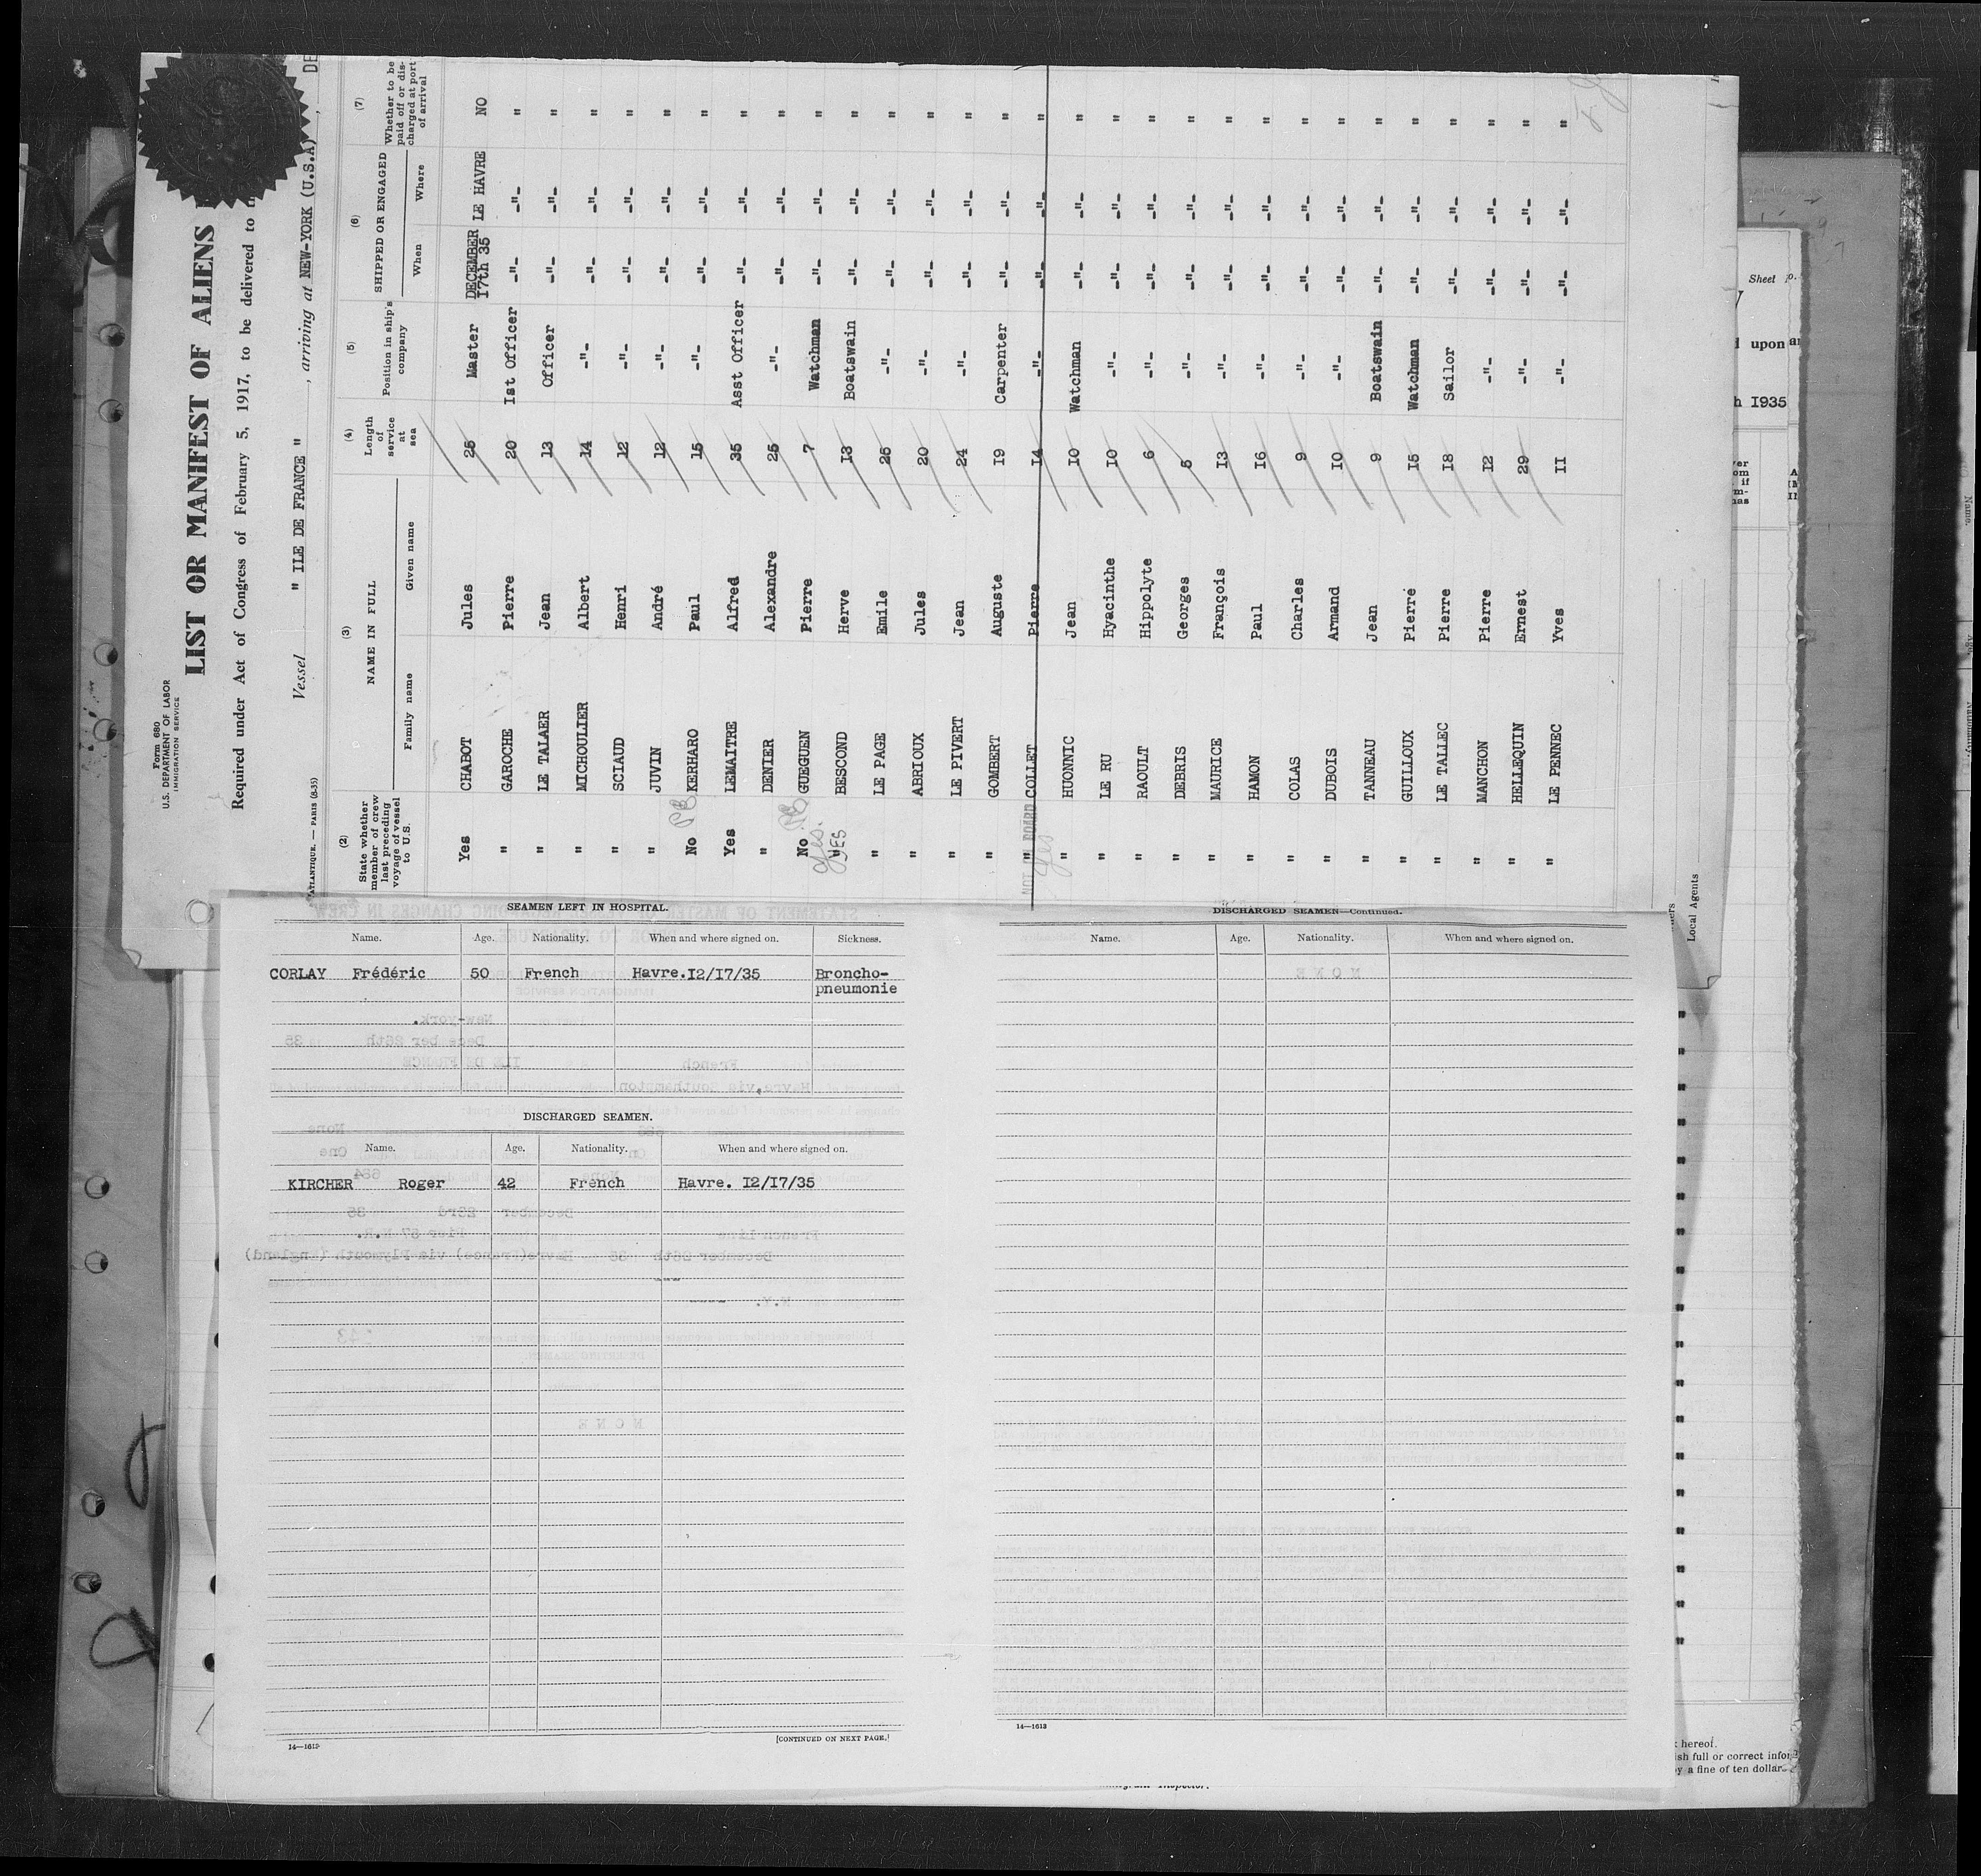 Form 680
U.S. DEPARTMENT OF LABOR
IMMIGRATION SERVICE
LIST OR MANIFEST OF ALIENS
Required under Act of Congress of February 5, 1917, to be delivered to
Vessel " ILE DE FRANCE " , arriving at NEW-YORK (U.S.A) , DE
ATLANTIQUE. — PARIS (8-35)
(2) (3) (4) (5) (6) (7)
State whether member of crew last preceding voyage of vessel to U.S.
NAME IN FULL
Family name Given name
Length of service at sea
Position in ship's company
SHIPPED OR ENGAGED
When Where
Whether to be paid off or discharged at port of arrival
Yes CHABOT Jules 25 Master DECEMBER 17th 35 LE HAVRE NO
" GAROCHE Pierre 20 Ist Officer -"- -"- "
" LE TALAER Jean 13 Officer -"- -"- "
" MICHOULIER Albert 14 -"- -"- -"- "
" SCIAUD Henri 12 -"- -"- -"- "
" JUVIN André 12 -"- -"- -"- "
No KERHARO Paul 15 -"- -"- -"- "
Yes LEMAITRE Alfred 35 Asst Officer -"- -"- "
" DENIER Alexandre 25 -"- -"- -"- "
No yes. GUEGUEN Pierre 7 Watchman -"- -"- "
YES BESCOND Herve I3 Boatswain -"- -"- "
" LE PAGE Emile 25 -"- -"- -"- "
" ABRIOUX Jules 20 -"- -"- -"- "
" LE PIVERT Jean 24 -"- -"- -"- "
" GOMBERT Auguste I9 Carpenter -"- -"- "
" COLLET Pierre I4 -"- -"- -"- "
NOT ON BOARD
yes
" HUONNIC Jean IO Watchman -"- -"- "
" LE RU Hyacinthe IO -"- -"- -"- "
" RAOULT Hippolyte 6 -"- -"- -"- "
" DEBRIS Georges 5 -"- -"- -"- "
" MAURICE François I3 -"- -"- -"- "
" HAMON Paul I6 -"- -"- -"- "
" COLAS Charles 9 -"- -"- -"- "
" DUBOIS Armand IO -"- -"- -"- "
" TANNEAU Jean 9 Boatswain -"- -"- "
" GUILLOUX Pierre I5 Watchman -"- -"- "
" LE TALLEC Pierre I8 Sailor -"- -"- "
" MANCHON Pierre I2 -"- -"- -"- "
" HELLEQUIN Ernest 29 -"- -"- -"- "
" LE PENNEC Yves II -"- -"- -"- "
Local Agents
Sheet
upon
I935
SEAMEN LEFT IN HOSPITAL.
Name. Age. Nationality. When and where signed on. Sickness.
CORLAY Frédéric 50 French Havre.I2/I7/35 Broncho-
pneumonie
DISCHARGED SEAMEN.
Name. Age. Nationality. When and where signed on.
KIRCHER Roger 42 French Havre. I2/I7/35
14—1613
[CONTINUED ON NEXT PAGE.]
DISCHARGED SEAMEN—Continued.
Name. Age. Nationality. When and where signed on.
14—1613
hereof.
ish full or correct infor
y a fine of ten dollar
Inspector.